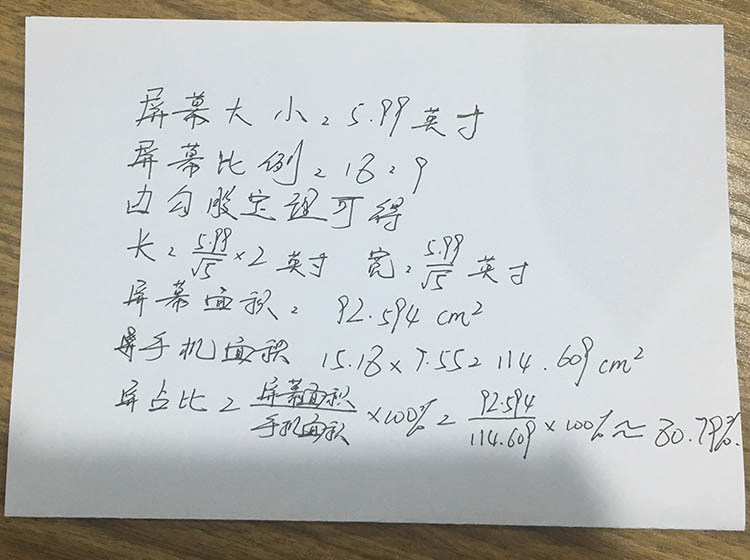 屏幕大小：5.99英寸
屏幕比例：18:9
由勾股定理可得
长：5.99/√5×2英寸 宽：5.99/√5英寸
屏幕面积：92.594cm²
手机面积 15.18×7.55=114.609cm²
屏占比=屏幕面积/手机面积×100%=92.594/114.609×100%≈80.79%.